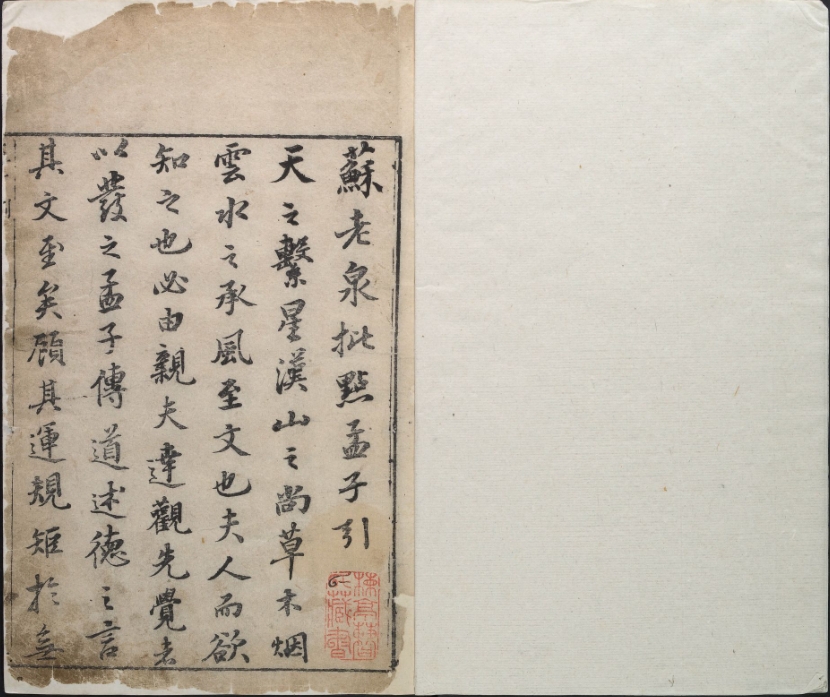 蘇老泉批點孟子引
天之繫星漢山之尚草木烟
雲水之承風至文也夫人而欲
知之也必由親夫達觀先覺者
以發之孟子傳道述德之言
其文至矣顧其運規矩於無